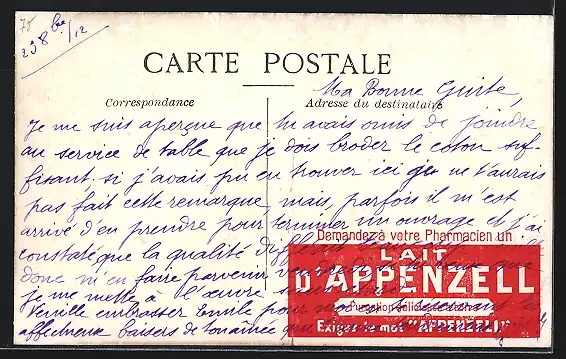 75
29 8bre /12
CARTE POSTALE
Ma Bonne Guite,
Correspondance
Adresse du destinataire
Je me suis aperçue que tu avais omis de joindre
au service de table que je dois broder le coton suf-
fisant. si j'avais pu en trouver ici je ne t'aurais
pas fait cette remarque, mais, parfois il m'est
arrivé d'en prendre pour terminer un ouvrage et j'ai
constaté que la qualité
donc m'en faire parvenir
je me mette à l'œuvre
embrasser Emile pour
affectueux baisers de
Demandez à votre Pharmacien un
LAIT
D'APPENZELL
Exigez le mot "APPENZELL"